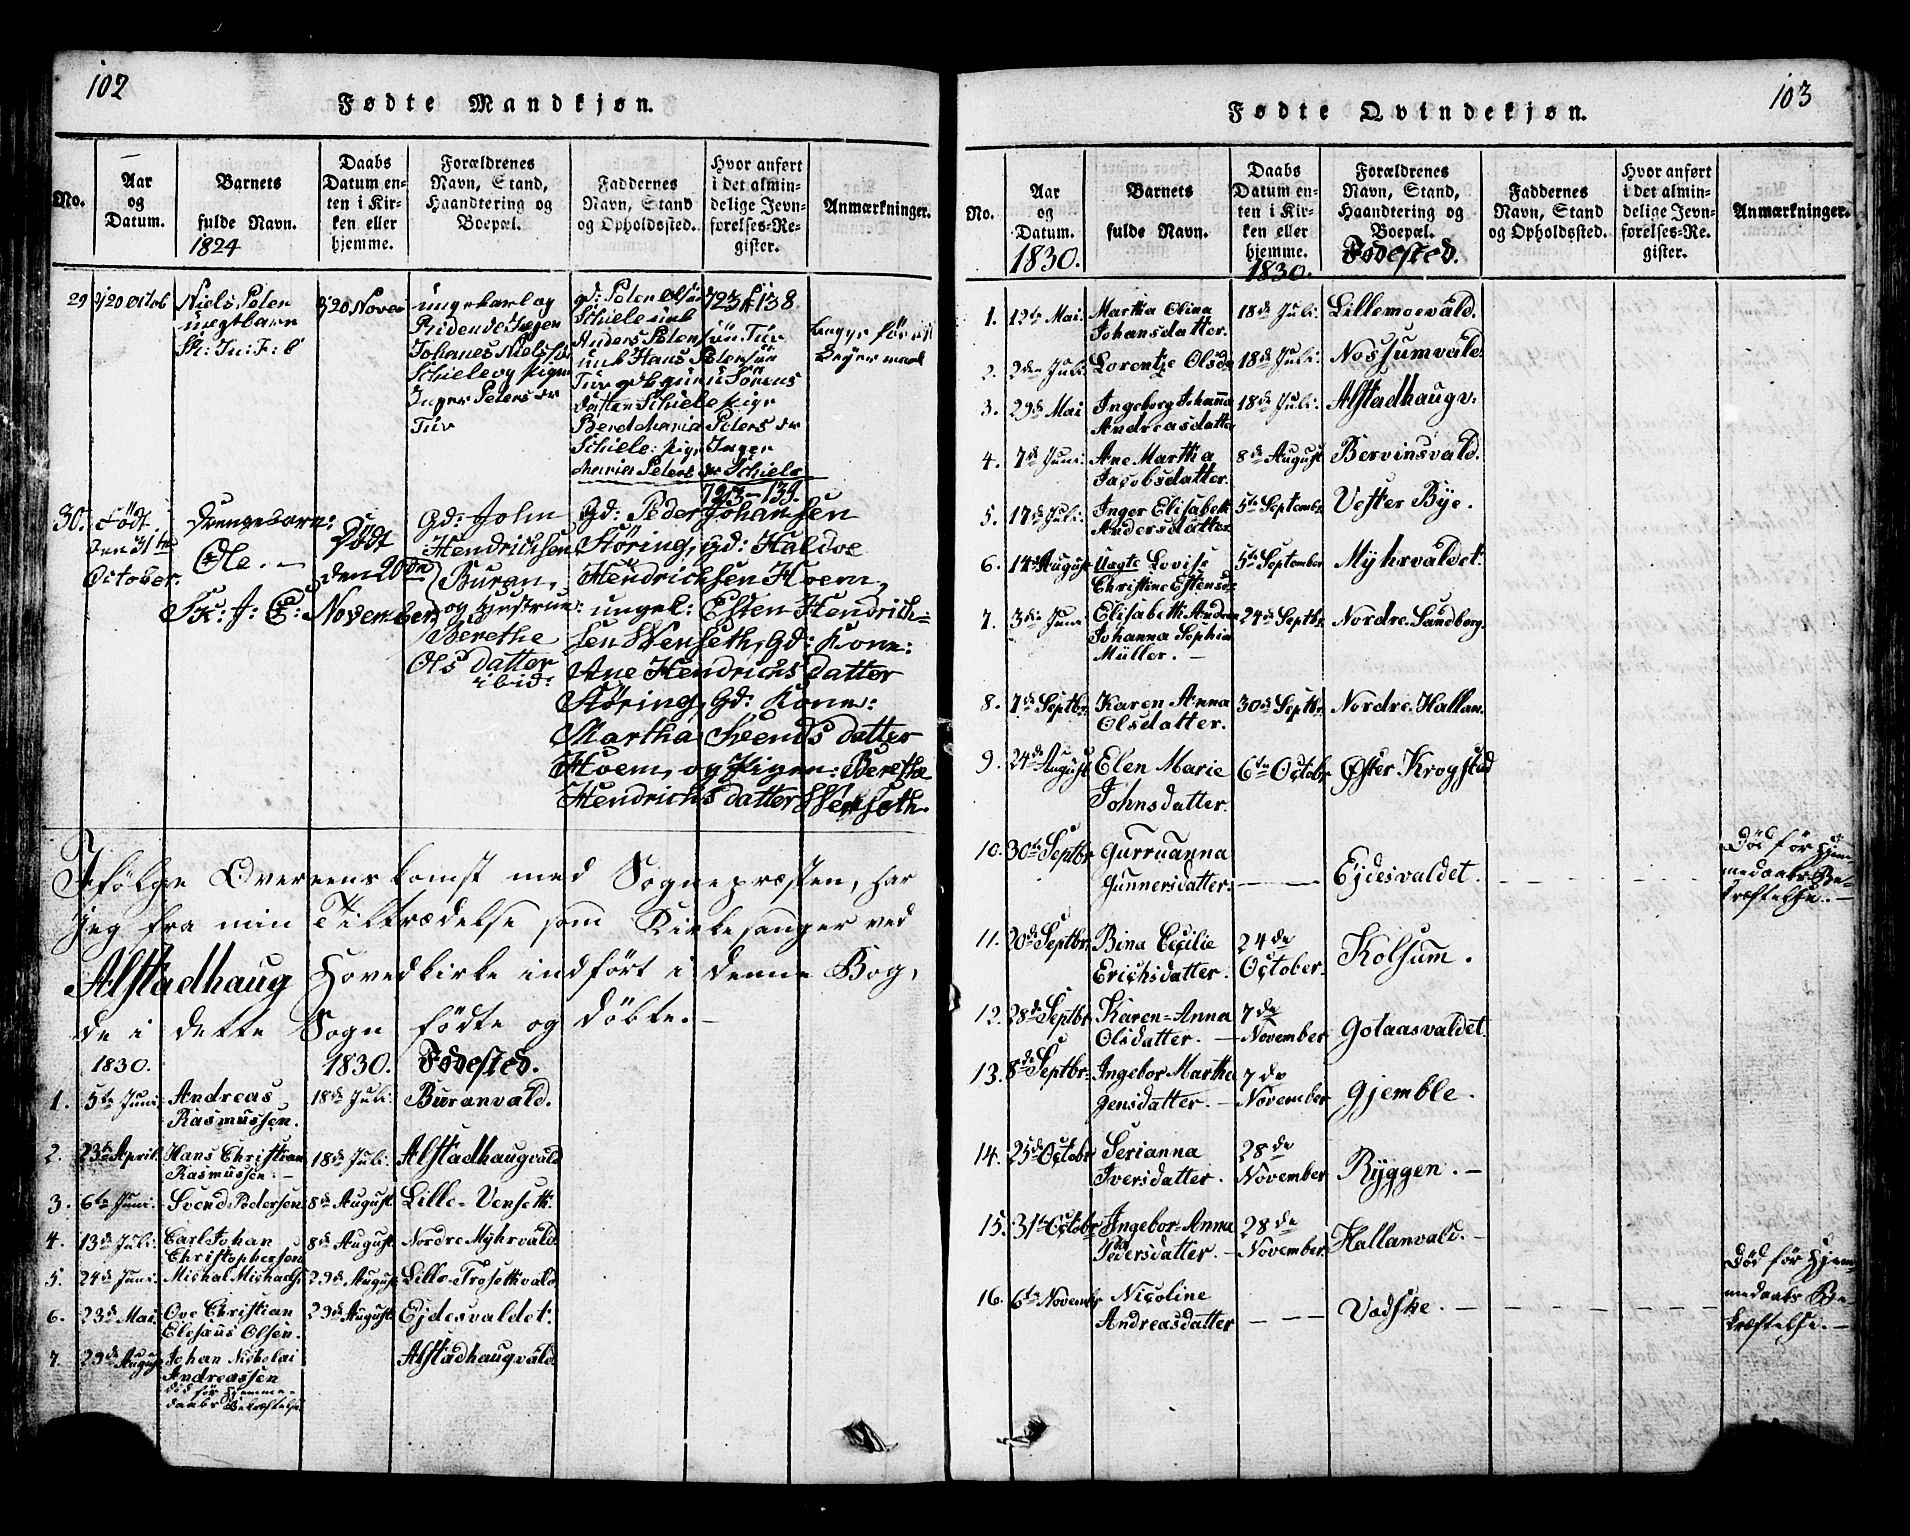 102
Fødte Mandkjøn.
No.
Aar
og
Datum.
Barnets
fulde Navn.
1824
Daabs
Datum en-
ten i Kir-
ken eller
hjemme.
Forældrenes
Navn, Stand,
Haandtering og
Boepæl.
Faddernes
Navn, Stand
og Opholdssted.
Hvor anført
i det almin-
delige Jevn-
førelses-Re-
gister.
Anmærkninger.
29 20 Octob
Niels Peter
uægt barn
20 Novem
ungekarl og
Johanes Nielssön
Schiele og Pigen
Inger Peters dr
Tuv
gd: Peter Olsön
Schiele unk
Anders Peter sön Tuv
unk Hans Petersön
Tuv
datter Schiele pige
Berd Maria Peters dr
Schiele: pige Inger
Maria Peters dr Schiele
723 - 138
723 - 139.
30. Födt
den 31te
October.
Drengebarn:
Ole. -
Sk: J: E:
Döbt
den 20de
November
Gd: John
Hendrichsen
Buran,
og Hustrue:
Berethe
Ols datter
ibid:
Gd: Peder Johansen
Störing, Gd: Haldoe
Hendrichsen Hoem,
ungel: Esten Hendrich-
sen Wenseth, Gd: Kone:
Ane Hendrichs datter
Störing, Gd: Kone:
Martha Svends datter
Hoem, og Pigen: Berethe
Hendrichs datter Wenseth.
Ifølge Overeenskomst med Sognepræsten, har
jeg fra min Tiltrædelse som Kirkesanger ved
Alstadhaug Hovedkirke indført i denne Bog,
de i dette Sogn fødte og döbte. -
1830. 1830. Fødested.
1. 5te Juni. Andreas
Rasmussen. 18de Juli. Buranvald.
2. 23de April. Hans Christian
Rasmussen. - 18de Juli. Alstadhaugvald
3. 6te Juni. Svend Pedersen 8de August. Lille-Venseth.
4. 13de Juli. Carl Johan
Christophersen 8de August Nordre Myhrvald
5. 24de Juni. Michal Michaels. 29de August Lille-Trosethvald
6. 23de Mai. Ove Christian
Elesæus Olsen. 29de August Ejdesvaldet.
7. 29de August Johan Nicholai
Andreassen
död för Hjemme-
daabs Bekræftelse. Alstadhaugvald
103
Fødte Qvindekjøn.
No.
Aar
og
Datum.
1830.
Barnets
fulde Navn.
Daabs
Datum en-
ten i Kir-
ken eller
hjemme.
1830.
Forældrenes
Navn, Stand,
Haandtering og
Boepæl.
Fødested.
Faddernes
Navn, Stand
og Opholdssted.
Hvor anført
i det almin-
delige Jevn-
førelses-Re-
gister.
Anmærkninger.
1. 12te Mai. Martha Olina
Johansdatter. 18de Juli. Lillemoevald.
2. 2den Juli. Lorentze Olsdr 18de Juli. Nossumvald.
3. 29de Mai Ingeborg Johanna
Andreasdatter 18de Juli. Alstadhaugv:
4. 7de Juni. Ane Martha
Jacobsdatter. 8de August Bervinsvald.
5. 17de Juli. Inger Elisabeth
Andersdatter 5te Septembr. Vester Bye.
6. 14de August Uægte Lovise
Christine Estensdr 5te September Myhrvaldet.
7. 3die Juni. Elisabeth Andrea
Johanna Sophia
Müller. - 24de Septbr. Nordre. Sandberg.
8. 7de Septbr. Karen Anna
Olsdatter. 30de Septbr. Nordre. Hallan.
9. 24de August Elen Marie
Johnsdatter. 6te Octobr Øster Krogstad
10. 30te Septbr Gurruanna
Gunnersdatter. - - - Ejdesvaldet. Död för Hjem-
medaabs Be-
kræftelse. -
11. 20de Septbr. Bina Cecilie
Erichsdatter. 24de
October. Kolsum.
12. 28de Septbr Karen-Anna
Olsdatter. - 7de
November Golaasvaldet.
13. 8de Septbr. Ingebor Martha
Jensdatter. - 7de
November Gjemble.
14. 25de Octobr Serianna
Iversdatter. 28de
November Ryggen. -
15. 31te Octobr Ingebor-Anna
Pedersdatter. - 28de
November. Hallanvald. -
16. 6te Novembr Nicoline
Andreasdatter - - - Vadske. - Död för Hjem-
medaabs Be-
kræftelse. -